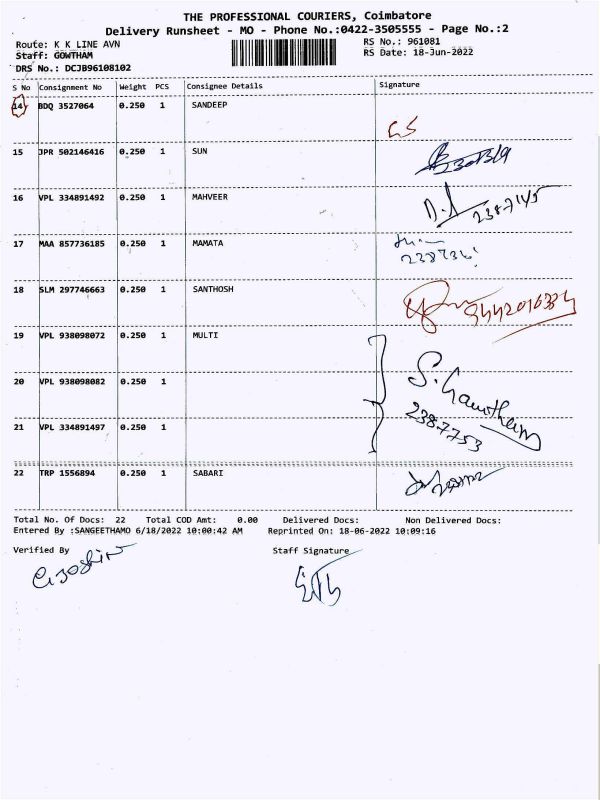 THE PROFESSIONAL COURIERS, Coimbatore
Delivery Runsheet - MO - Phone No.:0422-3505555 - Page No.:2
Route: K K LINE AVN
RS No.: 961081
Staff: GOWTHAM
RS Date: 18-Jun-2022
DRS No.: DCJB96108102
S No Consignment No Weight PCS Consignee Details Signature
14 BDQ 3527064 0.250 1 SANDEEP
15 JPR 502146416 0.250 1 SUN
16 VPL 334891492 0.250 1 MAHVEER
2387145
17 MAA 857736185 0.250 1 MAMATA
18 SLM 297746663 0.250 1 SANTHOSH
9442016334
19 VPL 938098072 0.250 1 MULTI
20 VPL 938098082 0.250 1
S. Gowtham
21 VPL 334891497 0.250 1
2387753
22 TRP 1556894 0.250 1 SABARI
Total No. Of Docs: 22 Total COD Amt: 0.00 Delivered Docs: Non Delivered Docs:
Entered By :SANGEETHAMO 6/18/2022 10:00:42 AM Reprinted On: 18-06-2022 10:09:16
Verified By Staff Signature